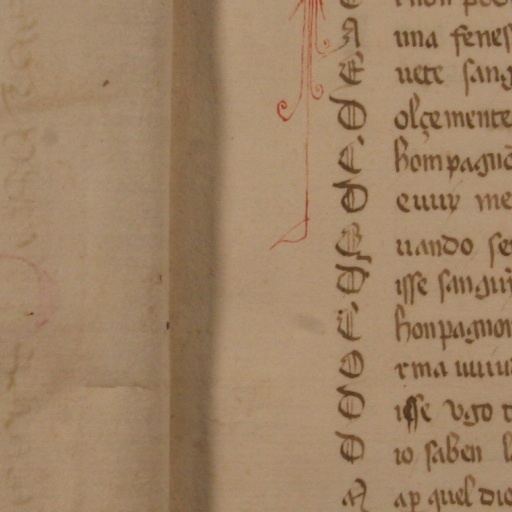 A una fenes
E uete sang
D olçemente
C hompagno
D euuy me
Q uando se
D isse sanguī
C honpagnon
O rma uuiu
D isse vgo
D io saben
M ap quel dio